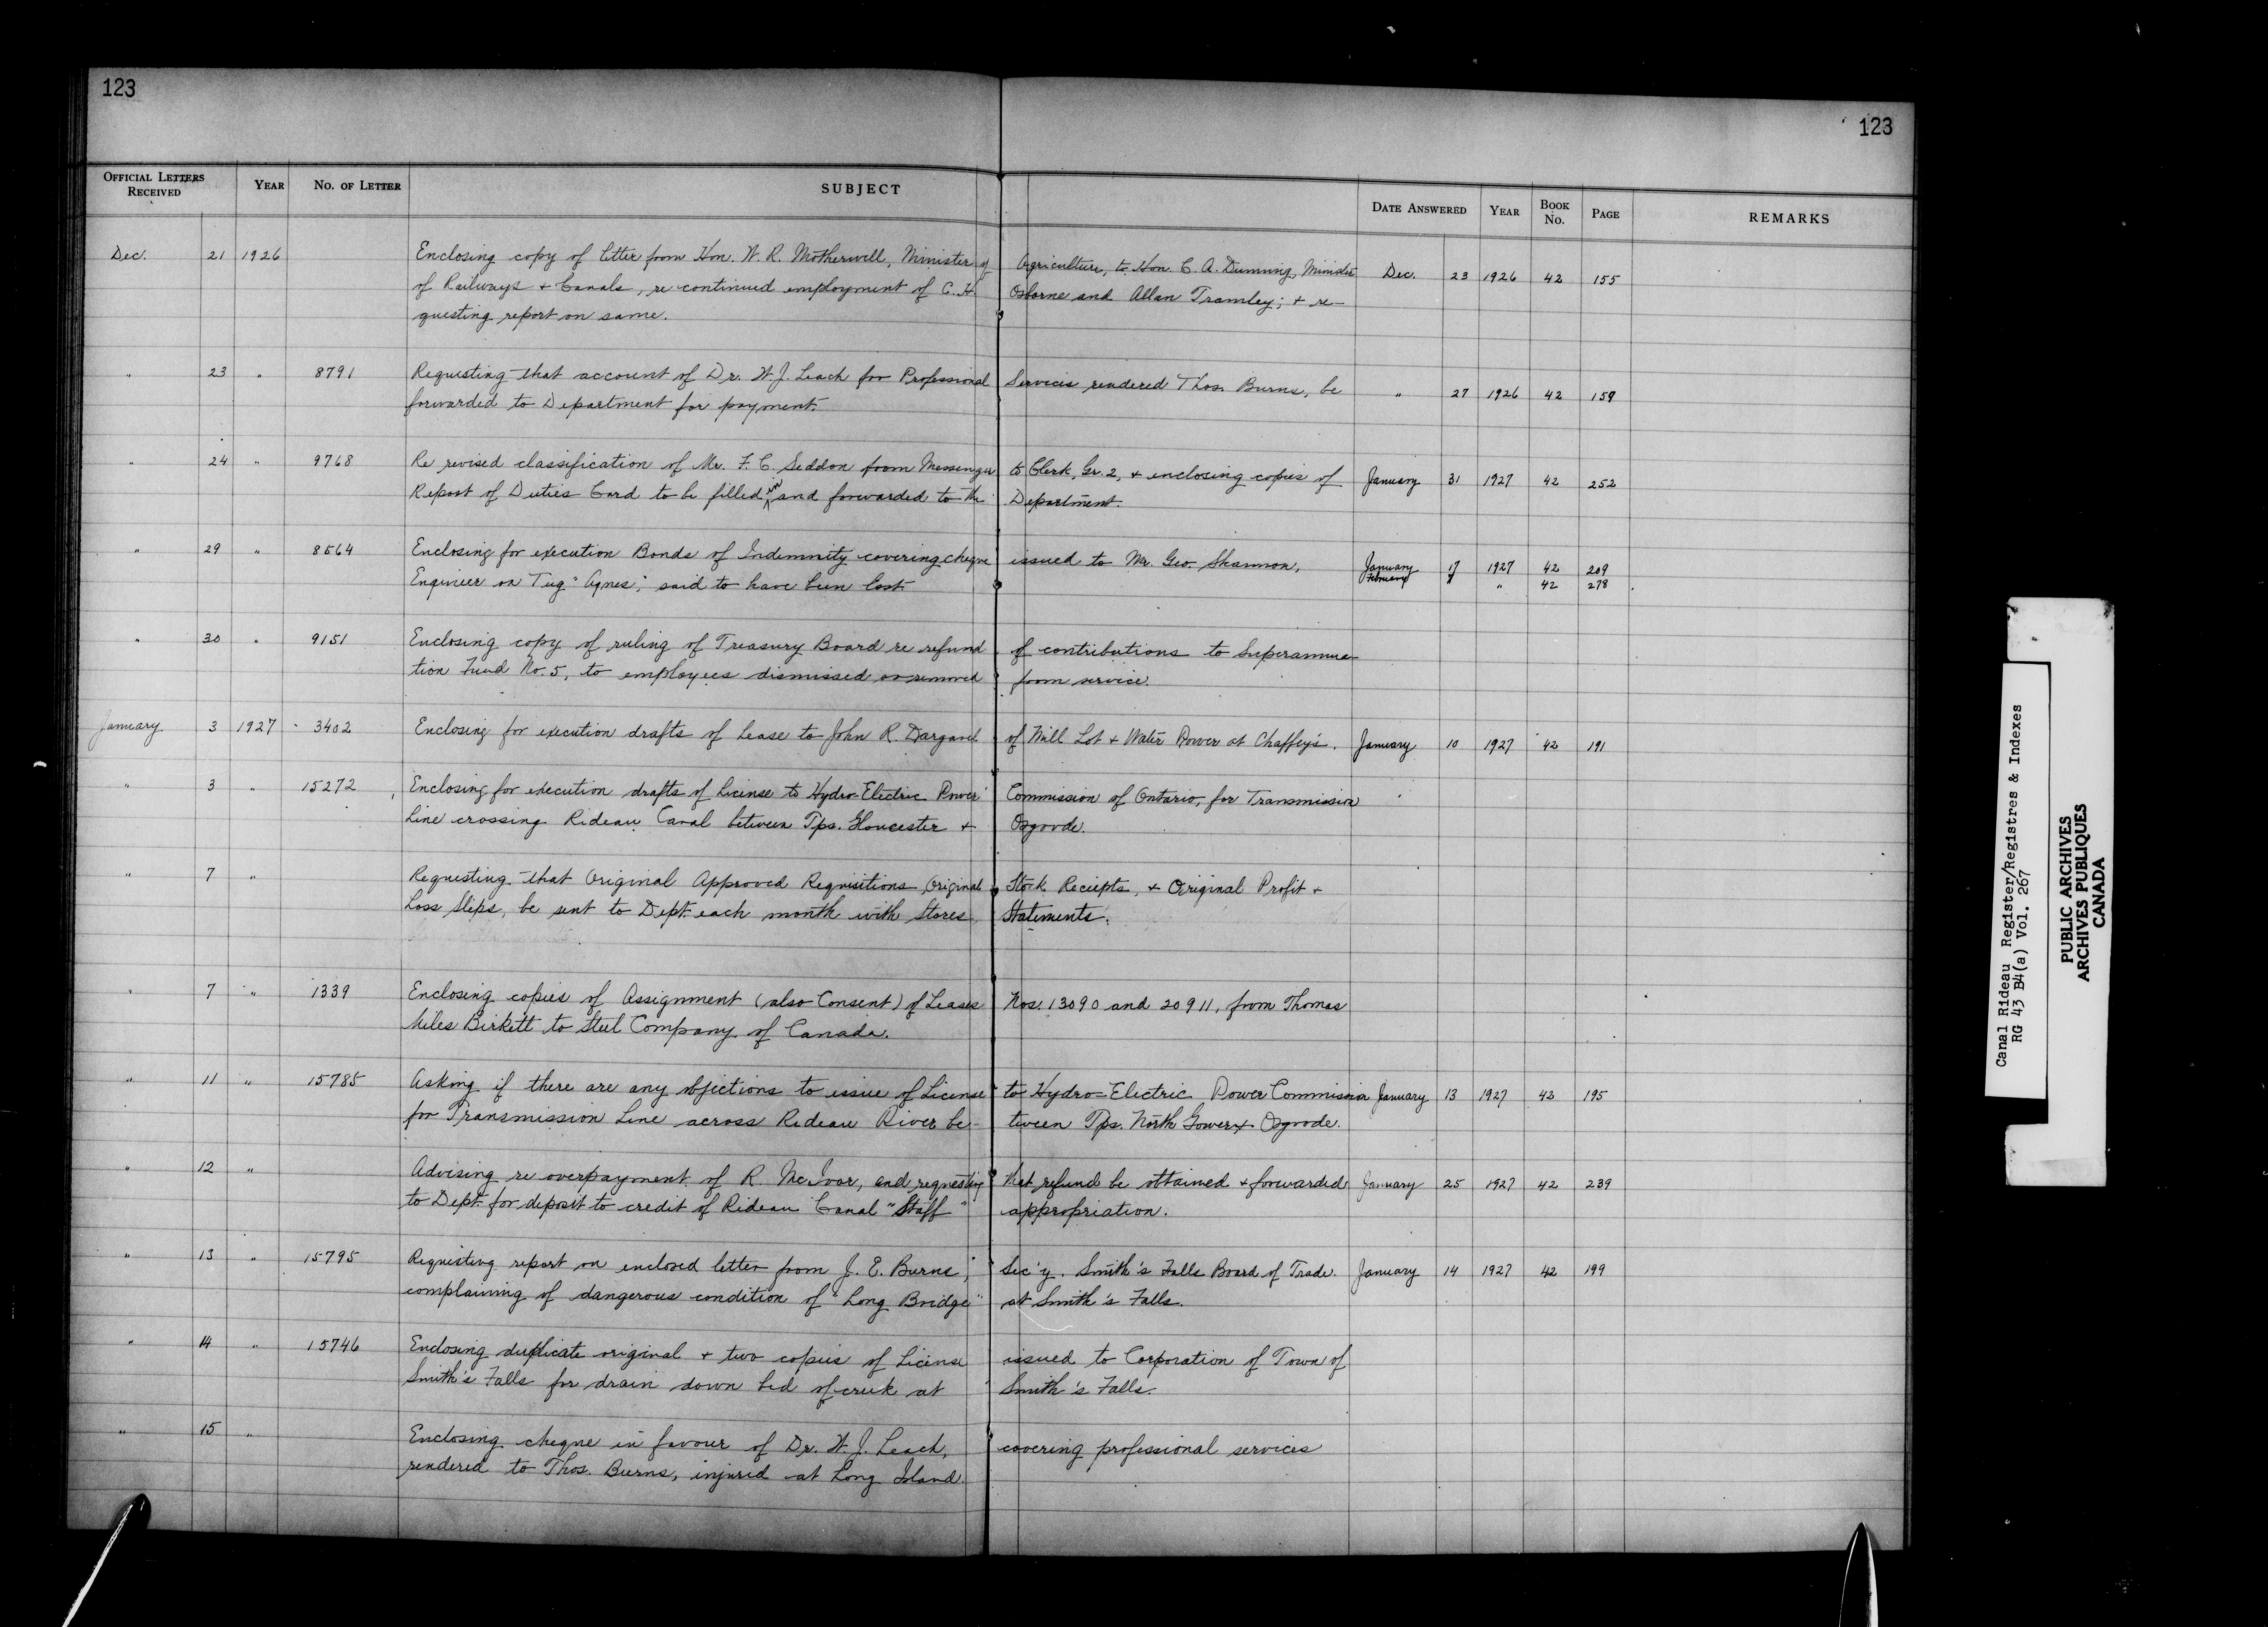 123
123
OFFICIAL LETTERS RECEIVED YEAR NO. OF LETTER SUBJECT DATE ANSWERED YEAR BOOK No. PAGE REMARKS
Dec. 21 1926 Enclosing copy of letter from Hon. W. R. Motherwell, Minister of Agriculture, to Hon. C. A. Dunning, Minister Dec. 23 1926 42 155
of Railways + Canals, re continued employment of C. H. Osborne and Allan Tramley; + re-
questing report on same.
" 23 " 8791 Requesting that account of Dr. W. J. Leach for Professional Services rendered Thos. Burns, be " 27 1926 42 159
forwarded to Department for payment.
" 24 " 9768 Re revised classification of Mr. F. C. Seddon from Messenger to Clerk, Gr. 2, + enclosing copies of January 31 1927 42 252
Report of Duties Card to be filled in and forwarded to the Department.
" 29 " 8564 Enclosing for execution Bonds of Indemnity covering cheque issued to Mr. Geo. Shannon, January 17 1927 42 209
Engineer on Tug "Agnes," said to have been lost. February " 42 278
" 30 " 9151 Enclosing copy of ruling of Treasury Board re refund of contributions to Superannua-
tion Fund No. 5, to employees dismissed or removed from service.
January 3 1927 3402 Enclosing for execution drafts of Lease to John R. Dargavel of Mill Lot + Water Power at Chaffey's. January 10 1927 42 191
" 3 " 15272 Enclosing for execution drafts of License to Hydro-Electric Power Commission of Ontario, for Transmission
Line crossing Rideau Canal between Tps. Gloucester + Osgoode.
" 7 " Requesting that Original Approved Requisitions, Original Stock Reciepts, + Original Profit +
Loss Slips, be sent to Dept. each month with Stores Statements.
" 7 " 1339 Enclosing copies of Assignment (also Consent) of Leases Nos. 13090 and 20911, from Thomas
Miles Birkett to Steel Company of Canada.
" 11 " 15785 Asking if there are any objections to issue of License to Hydro-Electric Power Commission January 13 1927 42 195
for Transmission Line across Rideau River be- tween Tps. North Gower + Osgoode.
" 12 " Advising re overpayment of R. McIvor, and requesting that refund be obtained + forwarded January 25 1927 42 239
to Dept. for deposit to credit of Rideau Canal "Staff" appropriation.
" 13 " 15795 Requesting report on enclosed letter from J. E. Burns, Sec'y. Smith's Falls Board of Trade. January 14 1927 42 199
complaining of dangerous condition of "Long Bridge" at Smith's Falls.
" 14 " 15746 Enclosing duplicate original + two copies of License issued to Corporation of Town of
Smith's Falls for drain down bed of creek at Smith's Falls.
" 15 " Enclosing cheque in favour of Dr. W. J. Leach, covering professional services
rendered to Thos. Burns, injured at Long Island.
Canal Rideau Register/Registres & Indexes
RG 43 B4(a) Vol. 267
PUBLIC ARCHIVES
ARCHIVES PUBLIQUES
CANADA